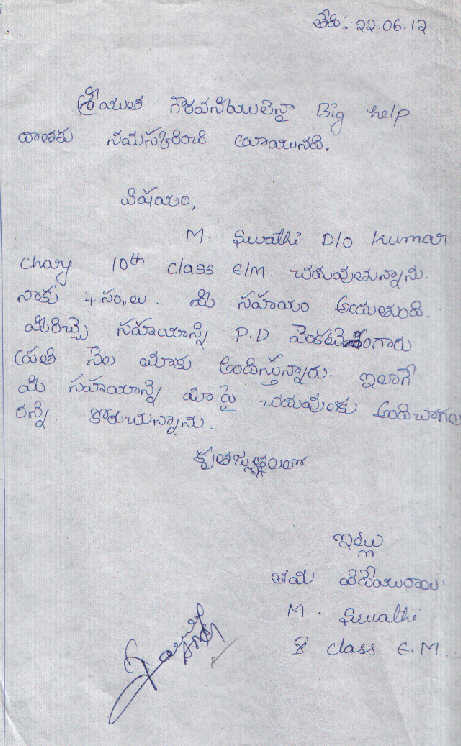 తేది: 22.06.12
శ్రీయుత గౌరవనీయులైన Big help
దాతకు నమస్కరించి వ్రాయునది.
విషయం,
M. D/o Kumar
Chary 10th class E/M చదువుతున్నాను.
నాకు 4 సం,లు. మీ సహాయం అందుతుంది.
మీరిచ్చే సహాయాన్ని P.D వెంకటేశంగారు
ప్రతి నెల మాకు అందిస్తున్నారు. ఇలాగే
మీ సహాయాన్ని మా పై చదువులకు
కోరుచున్నాను.
కృతజ్ఞతలతో
ఇట్లు
తమ విధేయురాలు
M.
X class E.M.